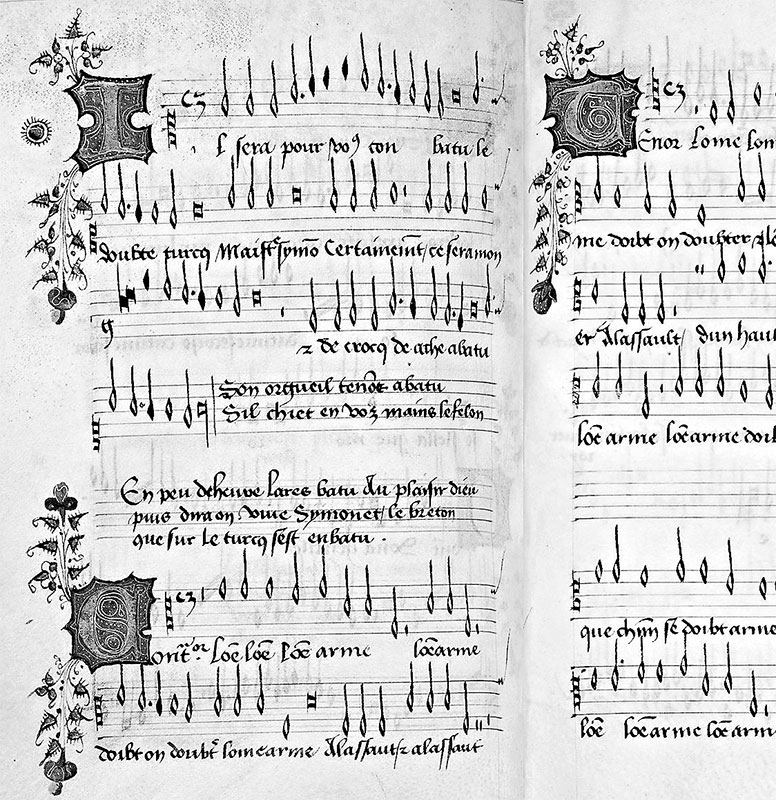 Il sera pour vo9 con batu le
doubte turcq Maistre symõ Certainemt / ce sera mon
z de crocq de ache abatu
Son orgueil tenõt abatu
Sil chiet en voz mains le felon
En peu dheuve lares batu Au plaisir dieu
puis dira on vive Symonet / le breton
que sur le turcq sest enbatu .
Contratenor Lõe lõe lõe arme lõe arme
doibt on doubtr lome arme Alassaut z alassaut
Tenor Lome lom
me doibt on doubter
er Alassault / dun haul
lõe arme lõe arme doib
que chũn se doibt arme
lõe lõe arme lõe arm